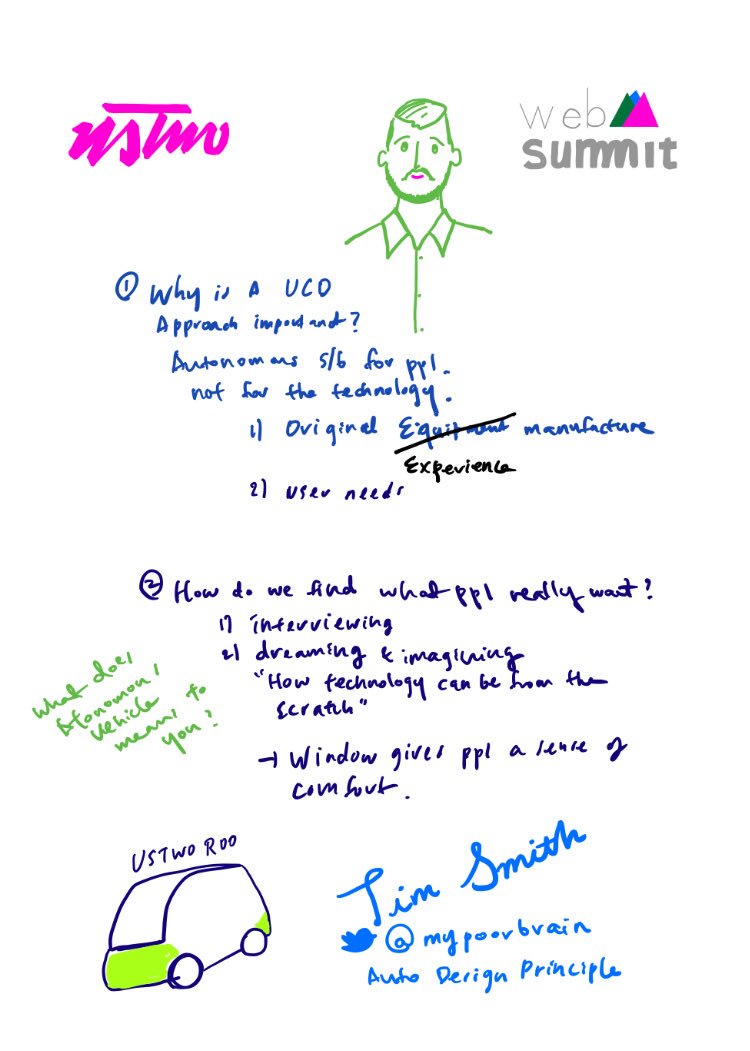 ustwo
web
summit
① Why is A UCD
Approach important?
Autonomous s/b for ppl.
not for the technology.
1) Original Equipment manufacture
Experience
2) user needs
② How do we find what ppl really want?
1) interviewing
2) dreaming & imagining
"How technology can be from the
scratch"
→ Window gives ppl a sense of
comfort.
What does
Autonomous
vehicle
means to
you?
USTWO ROO
Tim Smith
@mypoorbrain
Auto Design Principle